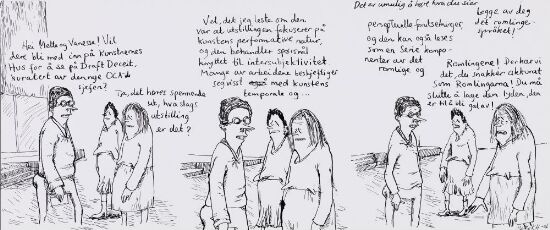 Hei Molle og Vanesse! Vil
dere bli med inn på Kunstnernes
Hus for å se på Draft Deceit,
kuratert av den nye OCA
sjefen?
Ja, det høres spennende
ut, hva slags
utstilling
er det?
Vel, det jeg leste om den
var at utstillingen fokuserer på
kunstens performative natur,
og den behandler spørsmål
knyttet til intersubjektivitet
Mange av arbeidene beskjeftiger
seg visst også med kunstens
temporale og ...
Det er umulig å høre hva du sier
perseptuelle forutsetninger
og den kan også leses
som en serie kompo-
nenter av det
romlige og
begge av deg
det romlinge-
språket!
Romlingene! Der har vi
det, du snakker akkurat
som Romlingene! Du må
slutte å lage den lyden, den
er til å bli gal av!